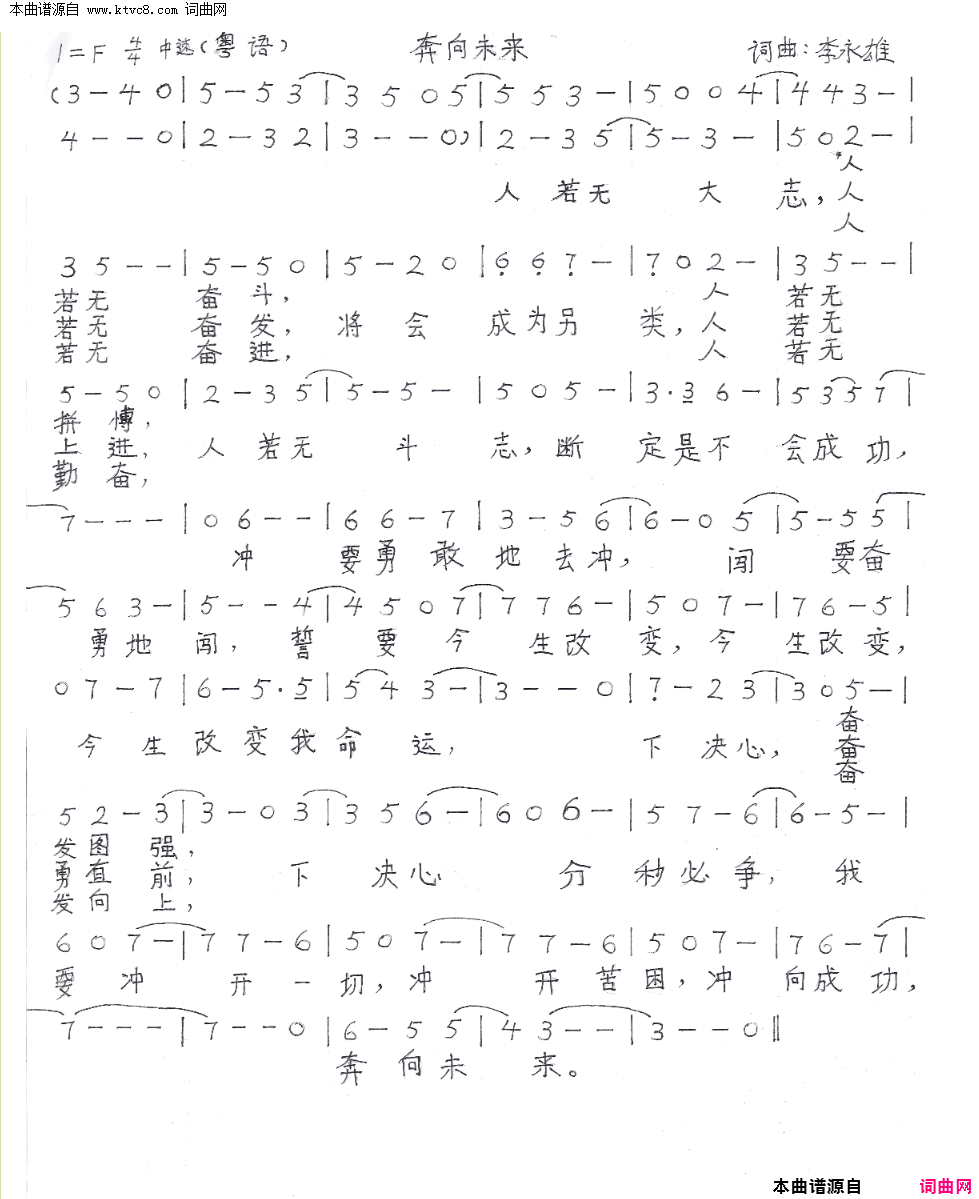 本曲谱源自 www.ktvc8.com 词曲网
1=F 4/4 中速(粤语) 奔向未来 词曲:李永雄
(3-40|5-53|3505|553-|5004|443-|
4--0|2-32|3--0)|2-35|5-3-|502-|
*人
人若无 大志,人
人
35--|5-50|5-20|667-|702-|35--|
若无 奋斗, 人 若无
若无 奋发, 将会 成为另 类,人 若无
若无 奋进, 人 若无
5-50|2-35|5-5-|505-|3·36-|5357|
拼博,
上进, 人若无 斗志,断 定是不 会成功,
勤奋,
7---|06--|66-7|3-56|6-05|5-55|
冲 要勇敢地去冲, 闯 要奋
563-|5--4|4507|776-|507-|76-5|
勇地闯, 誓要今 生改变,今 生改变,
07-7|6-5·5|543-|3--0|7-23|305-|
奋
今生改变我命运, 下决心,奋
奋
52-3|3-03|356-|606-|57-6|6-5-|
发图强,
勇直前, 下决心 分秒必争,我
发向上,
607-|77-6|507-|77-6|507-|76-7|
要冲 开一切,冲 开苦困,冲 向成功,
7---|7--0|6-55|43--|3--0‖
奔向未来。
本曲谱源自 词曲网